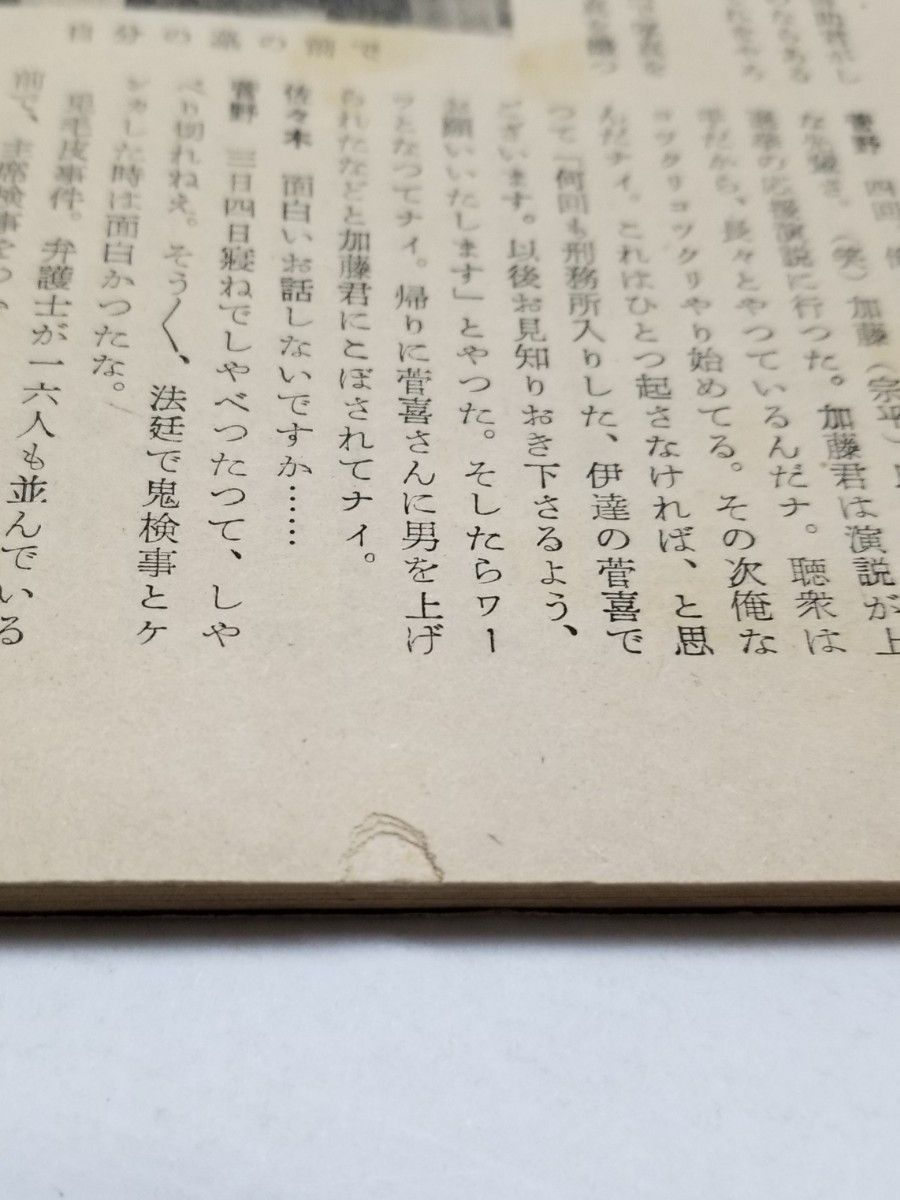 自分の墓の前で
菅野　四回、
な先輩さ。（笑）加藤（宗平）
選挙の応援演説に行った。加藤君は演説が上
手だから、長々とやつているんだナ。聴衆は
コツクリコツクリやり始めてる。その次俺な
んだナィ。これはひとつ起さなければ、と思
つて「何回も刑務所入りした、伊達の菅喜で
ございます。以後お見知りおき下さるよう、
お願いいたします」とやつた。そしたらワー
ツとなつてナィ。帰りに菅喜さんに男を上げ
られたなどと加藤君にこぼされてナィ。
佐々木　面白いお話しないですか……
菅野　三日四日寝ねでしやべつたつて、しや
べり切れねえ。そう〱、法廷で鬼検事とケ
ンカした時は面白かつたな。
兎毛皮事件。弁護士が一六人も並んでいる
前で、主席検事をつか